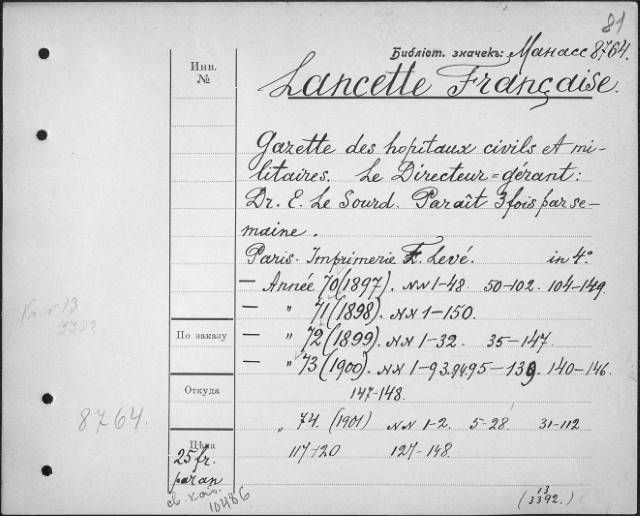 81
Библіот. значекъ: Манасс 8764.
Инв.
№
Lancette Française.
Gazette des hopitaux civils et mi-
litaires. Le Directeur=gérant:
Dr. E. Le Sourd. Paraît 3 fois par se-
maine.
Paris. Imprimerie F. Levé. in 4°
— Année 70 (1897). NN 1-48. 50-102. 104-149.
— " 71 (1898). NN 1-150.
— " 72 (1899). NN 1-32. 35-147.
— " 73 (1900). NN 1-93. 94. 95-139. 140-146.
147-148.
" 74. (1901) NN 1-2. 5-28. 31-112
117+20 127-148.
По заказу
Откуда
Цѣна
25 fr.
par an
13
3392
8764.
св. кат.
10486
(13
3392.)